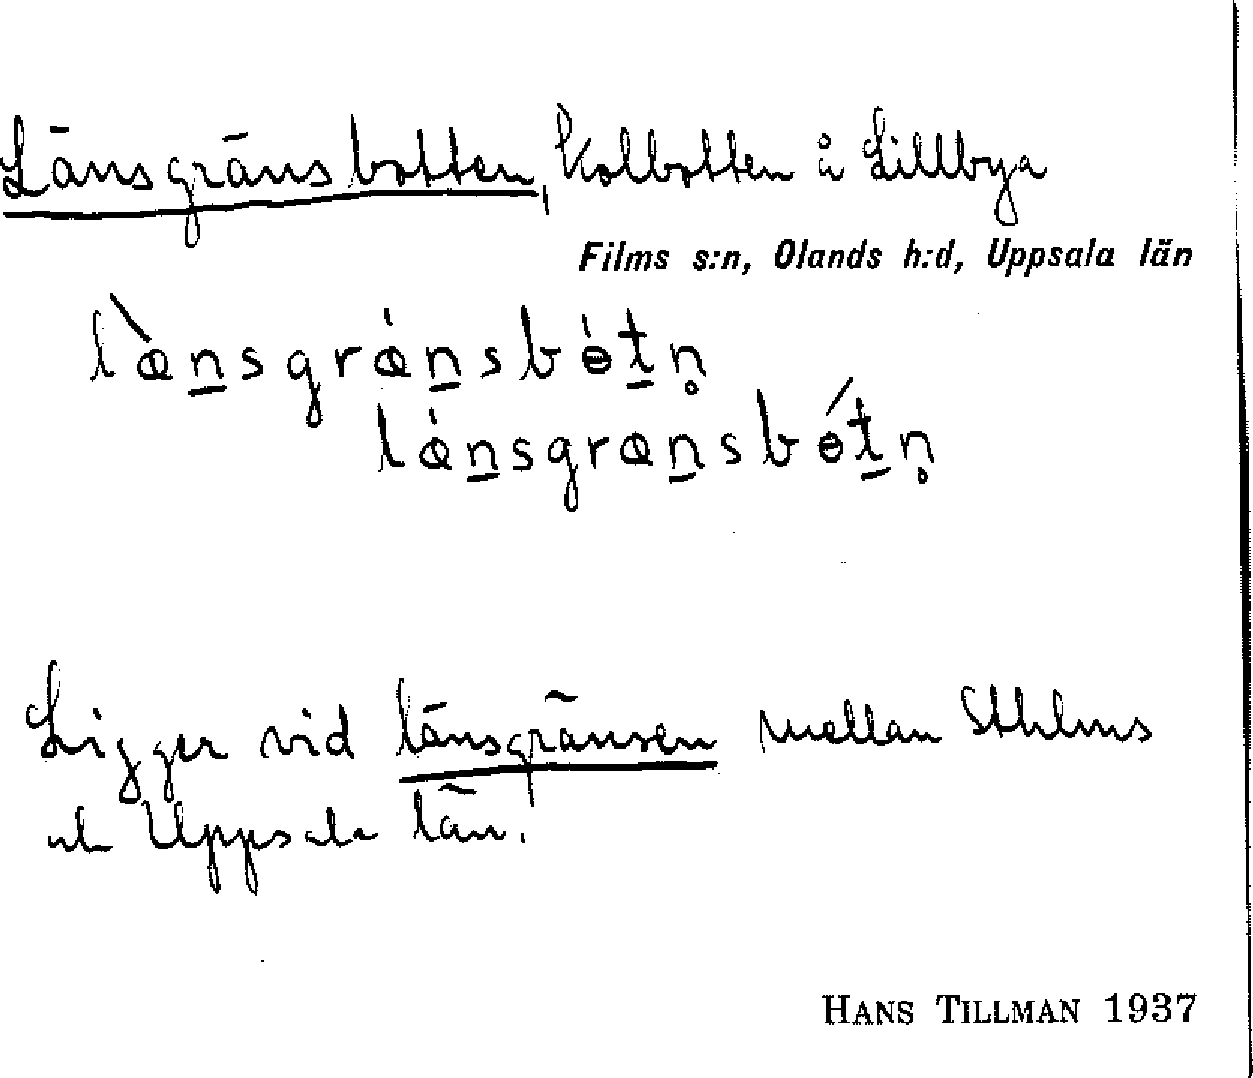 Länsgränsbotten, Kolbotten å Lillbya
Films s:n, Olands h:d, Uppsala län
læ̀nsgræ̇nsbɵ̇tn̥
læ̇nsgrænsbɵ́tn̥
Ligger vid länsgränsen mellan Sthlms
och Uppsala län.
HANS TILLMAN 1937